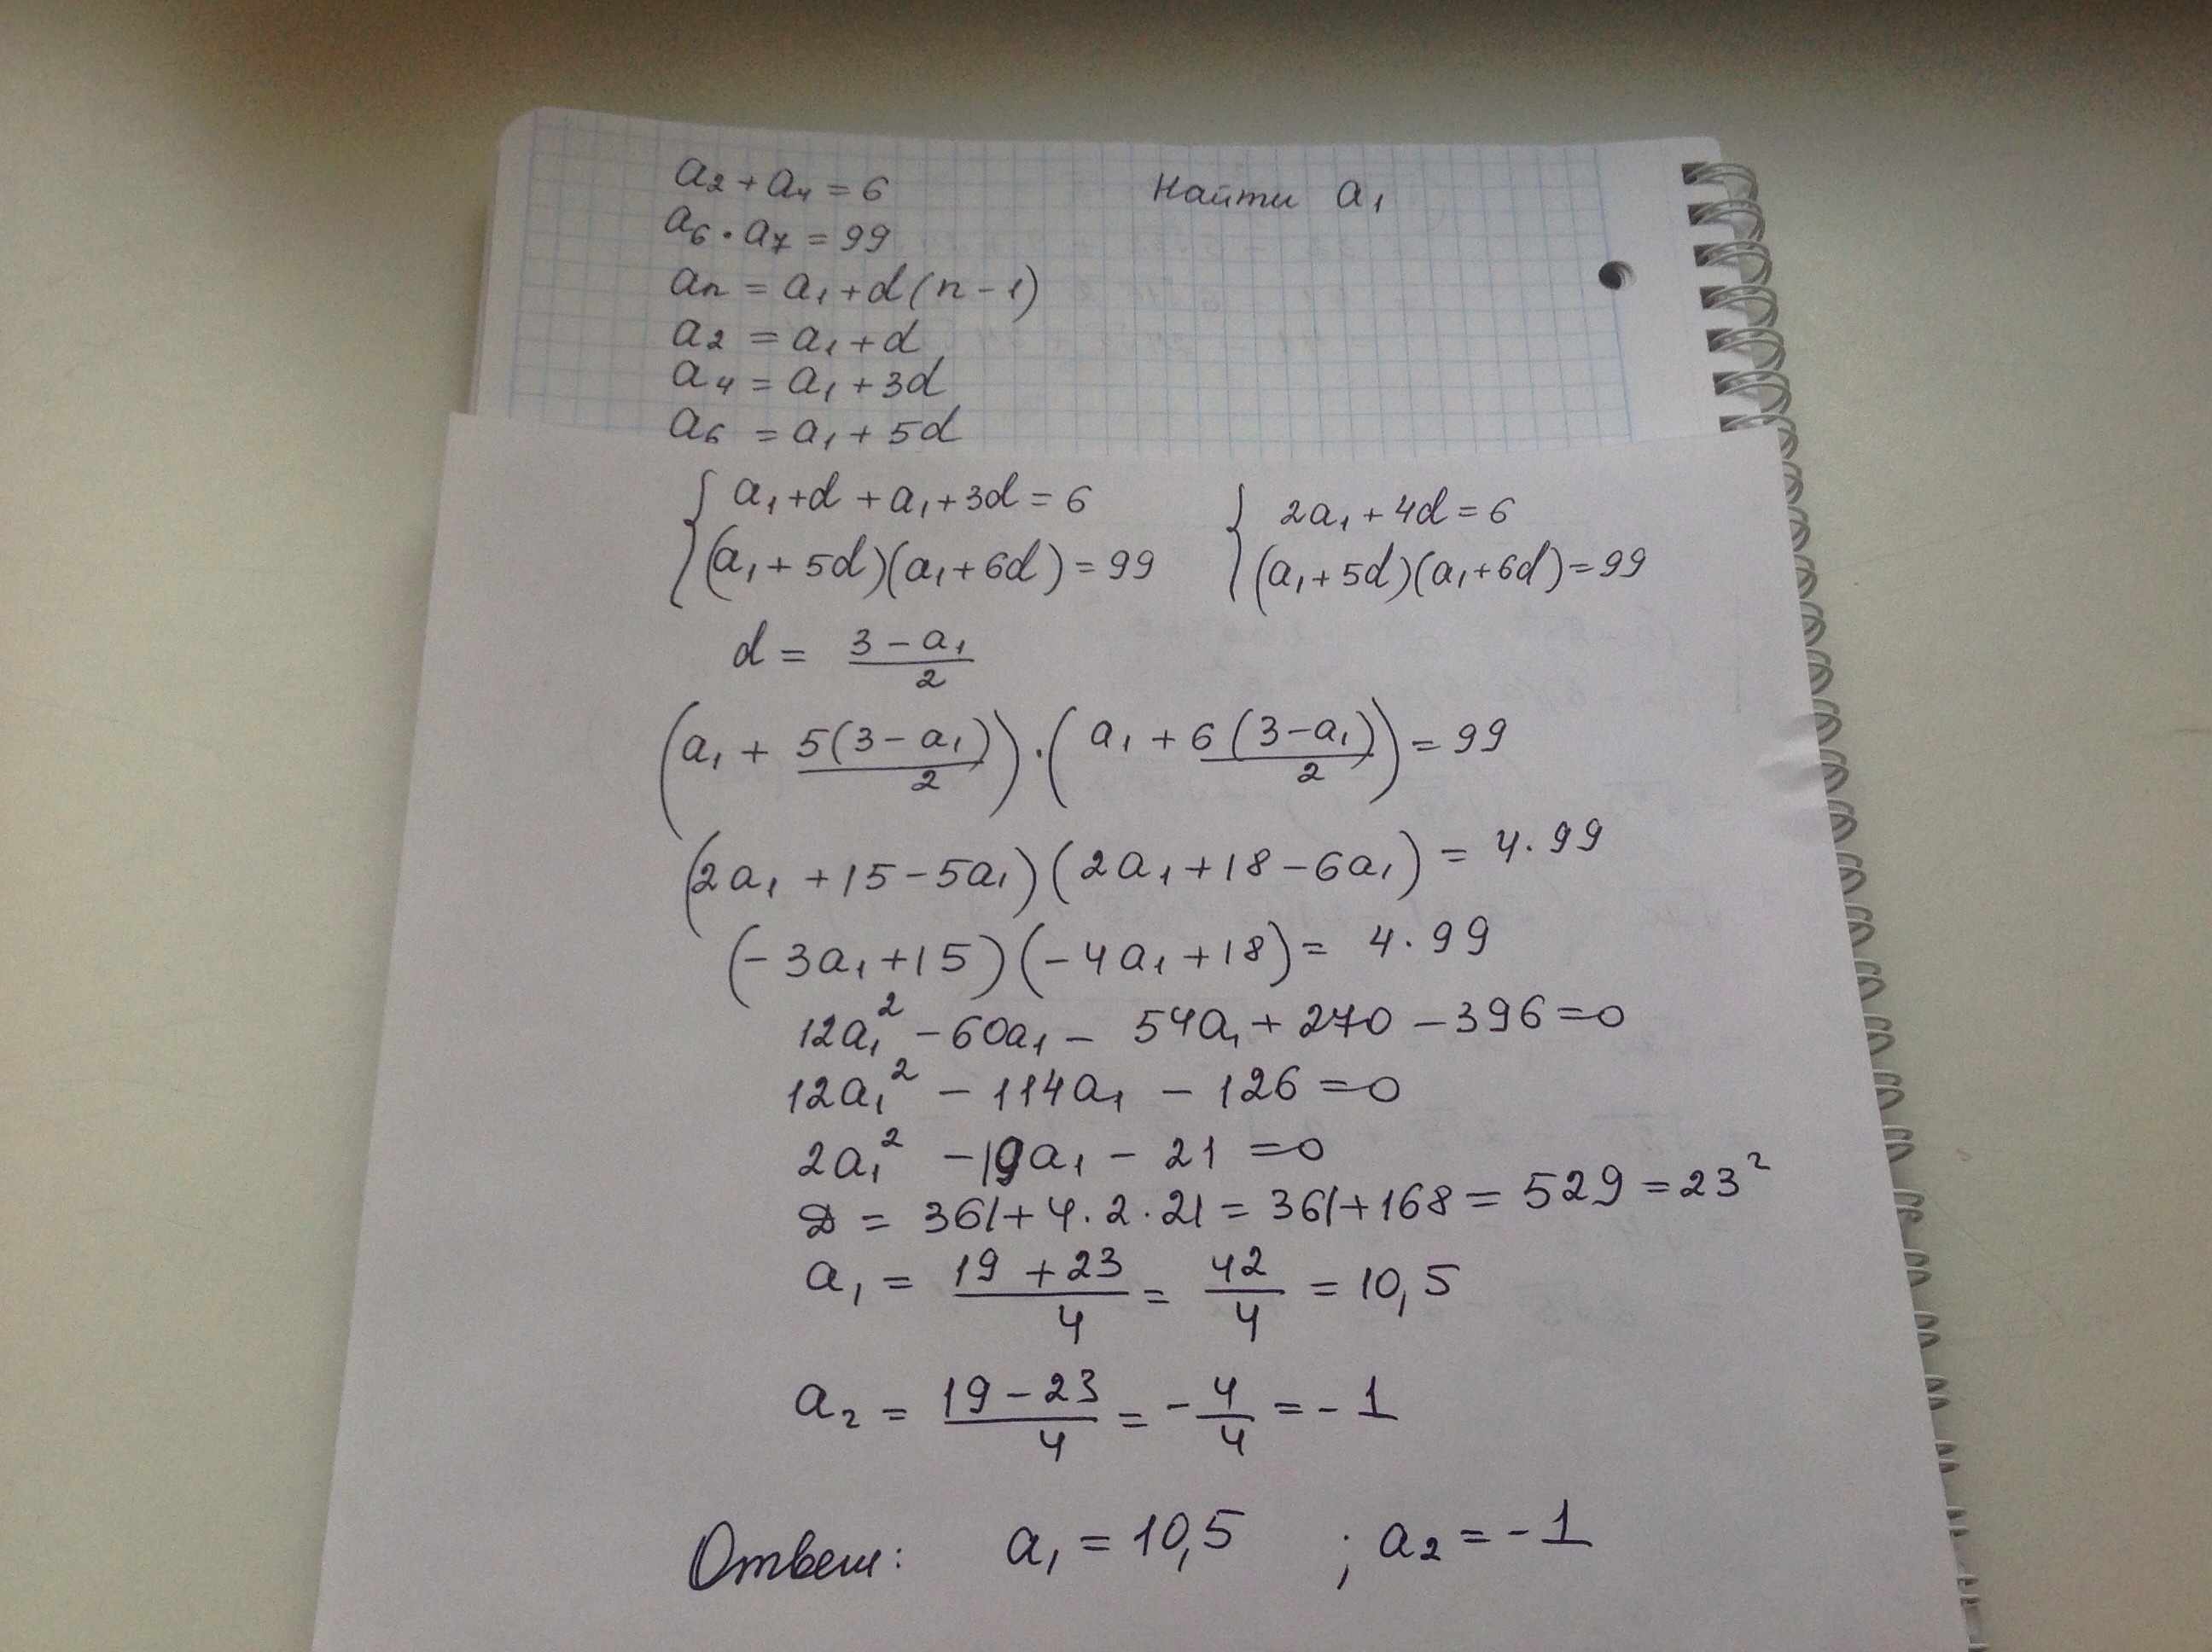 a₂ + a₄ = 6 Найти a₁
a₆ · a₇ = 99
aₙ = a₁ + d(n - 1)
a₂ = a₁ + d
a₄ = a₁ + 3d
a₆ = a₁ + 5d
{ a₁ + d + a₁ + 3d = 6 { 2a₁ + 4d = 6
(a₁ + 5d)(a₁ + 6d) = 99 (a₁ + 5d)(a₁ + 6d) = 99
d = (3 - a₁)/2
(a₁ + 5(3 - a₁)/2) · (a₁ + 6(3 - a₁)/2) = 99
(2a₁ + 15 - 5a₁)(2a₁ + 18 - 6a₁) = 4 · 99
(- 3a₁ + 15)(- 4a₁ + 18) = 4 · 99
12a₁² - 60a₁ - 54a₁ + 270 - 396 = 0
12a₁² - 114a₁ - 126 = 0
2a₁² - 19a₁ - 21 = 0
D = 361 + 4 · 2 · 21 = 361 + 168 = 529 = 23²
a₁ = (19 + 23)/4 = 42/4 = 10,5
a₂ = (19 - 23)/4 = - 4/4 = - 1
Ответ: a₁ = 10,5 ; a₂ = - 1